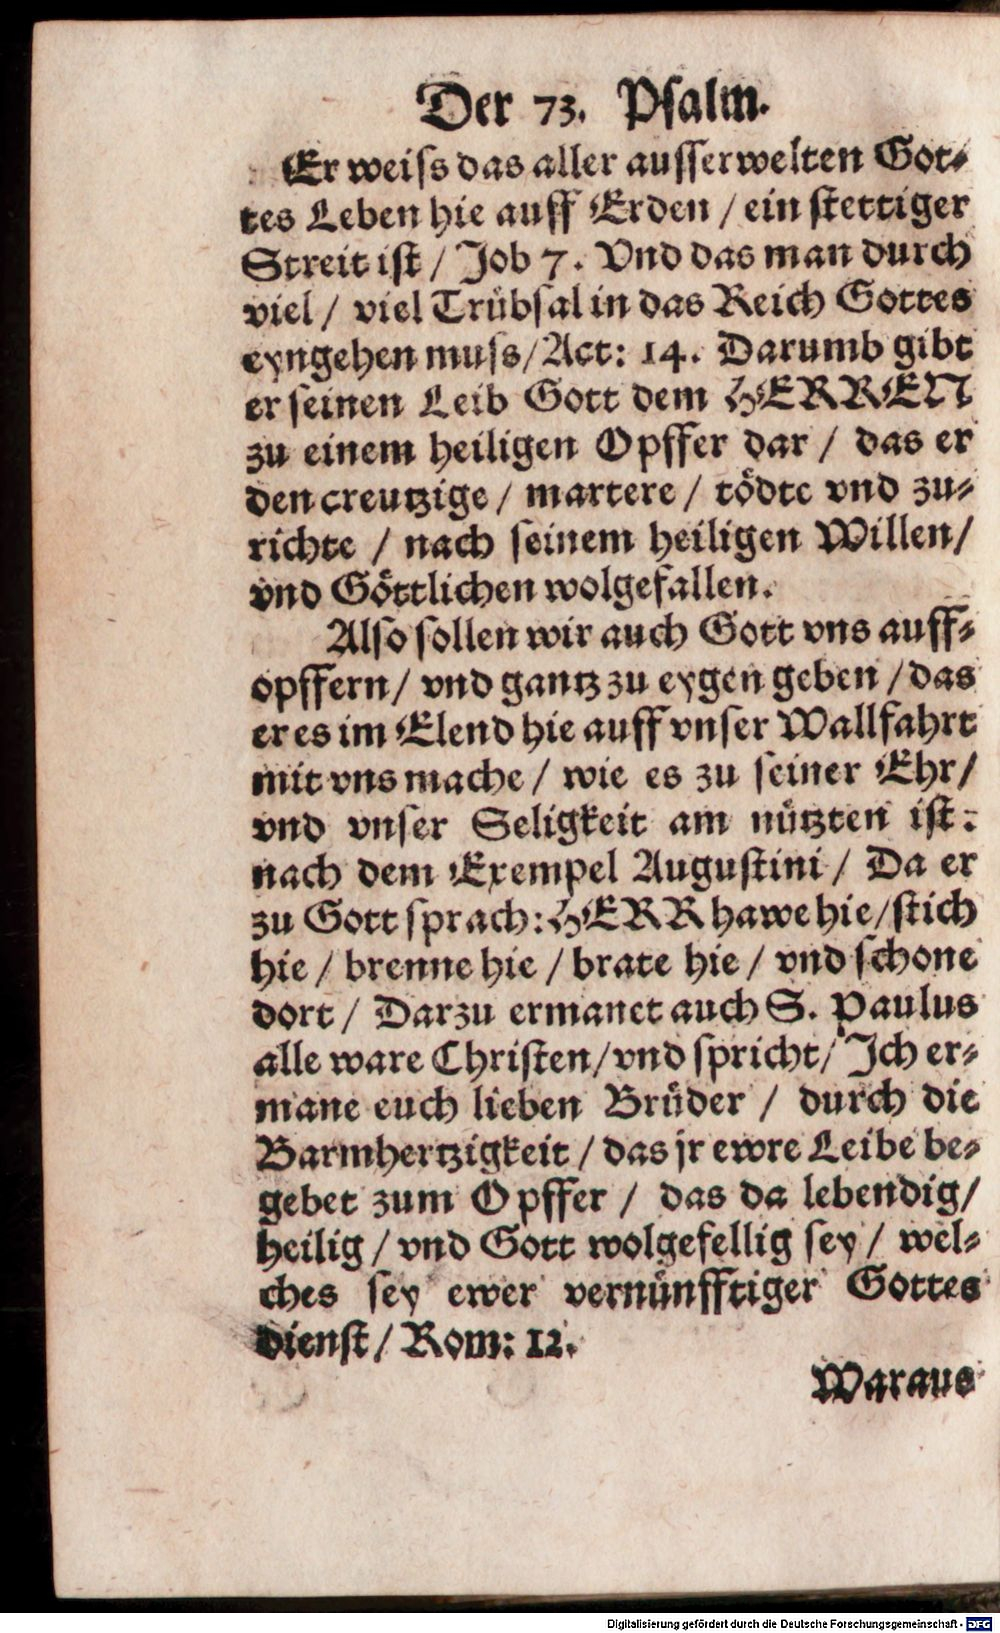 Der 73. Psalm.
Er weiſs das aller auſſerwelten Got⸗
tes Leben hie auff Erden / ein ſtettiger
Streit iſt / Job 7. Vnd das man durch
viel / viel Trübſal in das Reich Gottes
eyngehen muſs / Act: 14. Darumb gibt
er ſeinen Leib Gott dem HERREN
zu einem heiligen Opffer dar / das er
den creutzige / martere / tödte vnd zu⸗
richte / nach ſeinem heiligen Willen /
vnd Göttlichen wolgefallen.
Alſo ſollen wir auch Gott vns auff⸗
opffern / vnd gantz zu eygen geben / das
er es im Elend hie auff vnſer Wallfahrt
mit vns mache / wie es zu ſeiner Ehr /
vnd vnſer Seligkeit am nützten iſt:
nach dem Exempel Auguſtini / Da er
zu Gott ſprach: HERR hawe hie / ſtich
hie / brenne hie / brate hie / vnd ſchone
dort / Darzu ermanet auch S. Paulus
alle ware Chriſten / vnd ſpricht / Ich er⸗
mane euch lieben Brüder / durch die
Barmhertzigkeit / das jr ewre Leibe be⸗
gebet zum Opffer / das da lebendig /
heilig / vnd Gott wolgefellig ſey / wel⸗
ches ſey ewer vernünfftiger Gottes
dienſt / Rom: 12.
Waraus
Digitalisierung gefördert durch die Deutsche Forschungsgemeinschaft - DFG